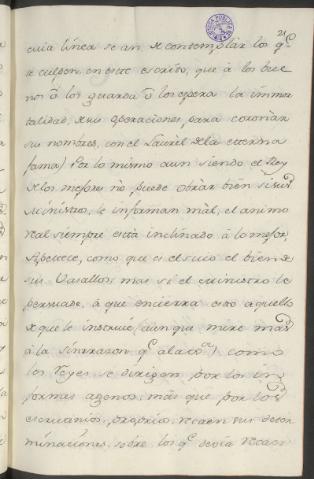 21
cuia linea se an de contemplar los q.e
se culpen en este escrito, que á los bue
nos ô los guarda ô los espera la immor
talidad, de sus operaciones, para coronar
sus nombres, con el Laurel de la eterna
fama) Por lo mismo aun siendo el Rey
de los mejores no puede obrar bien si sus
Ministros, le informan mal; el animo
Real siempre està inclinado à lo mejor,
apetece, como que es el suio el bien de
sus Vasallos, mas si el Ministro le
persuade, à que encierra esto ò aquello
de que le instruie (aun que mire mas
à la sinrrason q.e à la
como
los Reyes se dirigen por los in
formes agenos, mas que por los
escrutinios, proprios recaen sus deter
minaciones, sobre los q.e devia recaer